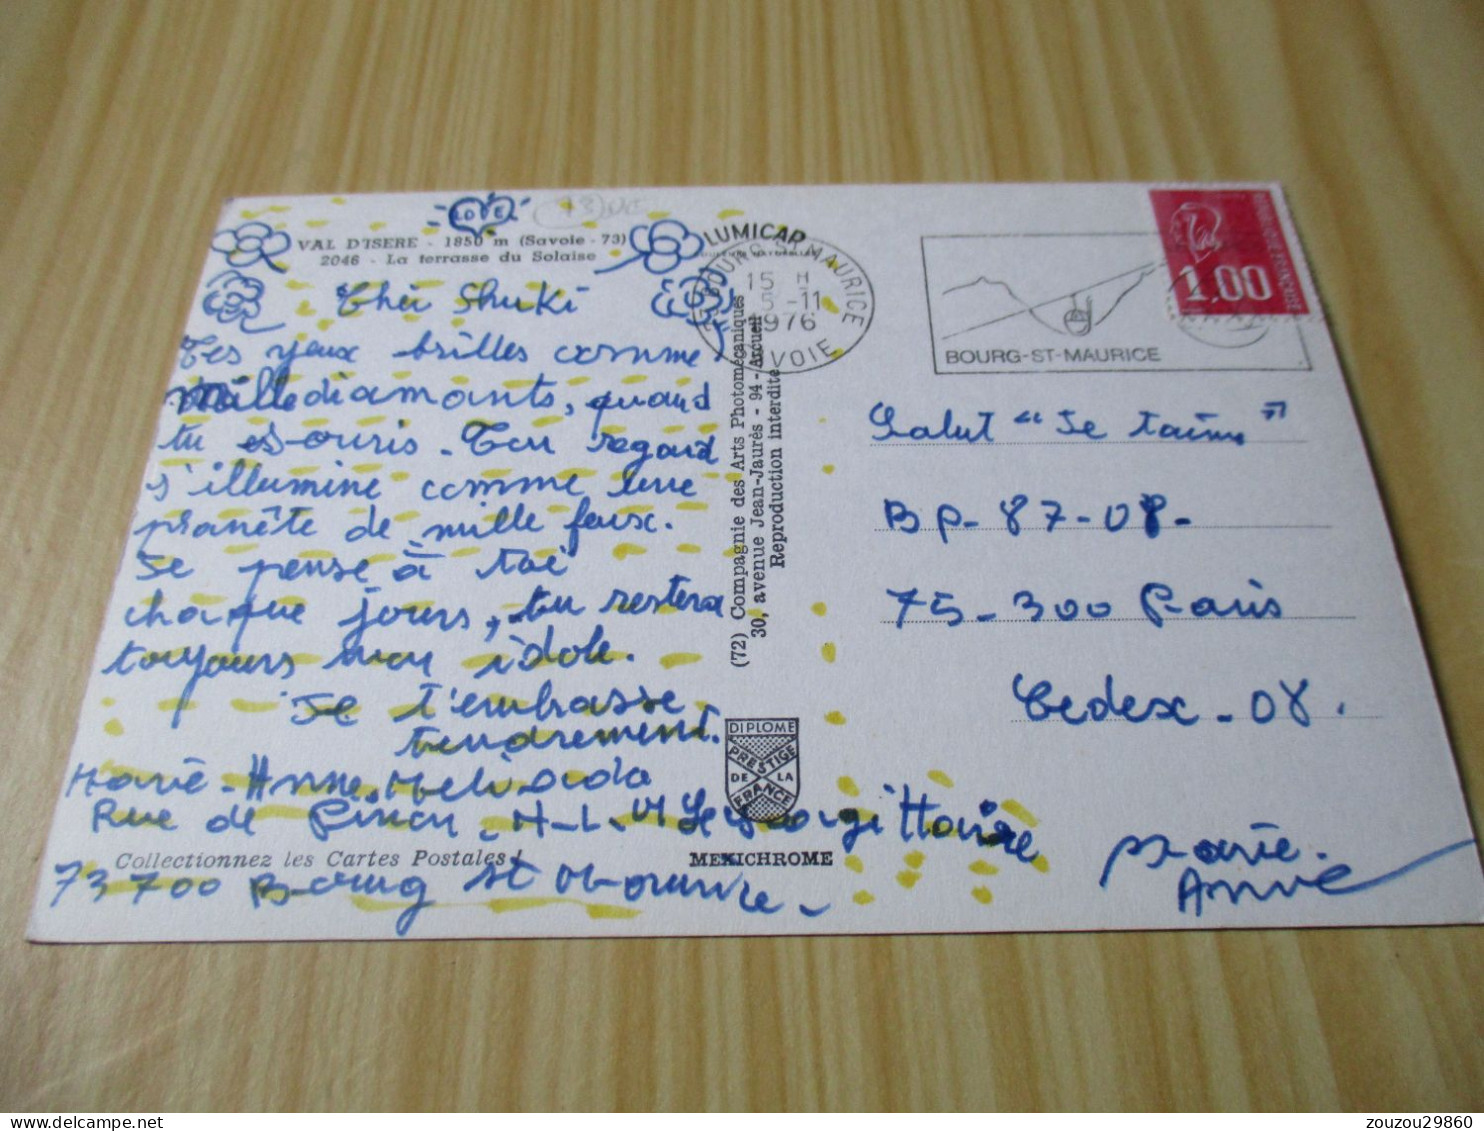 LOVE
VAL D'ISERE - 1850 m (Savoie - 73)
2046 - La terrasse du Solaise
LUMICAP
BOURG-ST-MAURICE
15 H
5-11
1976
SAVOIE
BOURG-ST-MAURICE
1.00
Cher Shuki
Tes yeux brilles comme
Mille diamants, quand
tu souris. Ton regard
s'illumine comme une
pranête de mille feux.
Je pense à toi
chaque jours, tu restera
toujours mon idole.
Je t'embrasse
tendrement.
Marie-Anne
Rue de Pinon, H-L-M Le Sagittaire
73700 Bourg st Maurice.
Collectionnez les Cartes Postales !
(72) Compagnie des Arts Photomécaniques
30, avenue Jean-Jaurès - 94 - Arcueil
Reproduction interdite
DIPLOME
PRESTIGE
DE LA
FRANCE
MEXICHROME
Salut "Je t'aime"
BP-87-08-
75-300 Paris
Cedex-08.
Marie.
Anne
zouzou29860